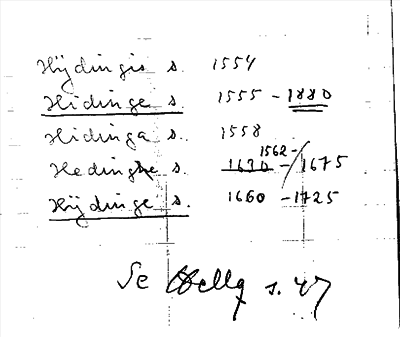 Hÿdingis s. 1554
Hidinge s. 1555 - 1880
Hidinga s. 1558
Hedinge s. 1562 - 1675
Hÿdinge s. 1660 - 1725
Se Hellq s. 47